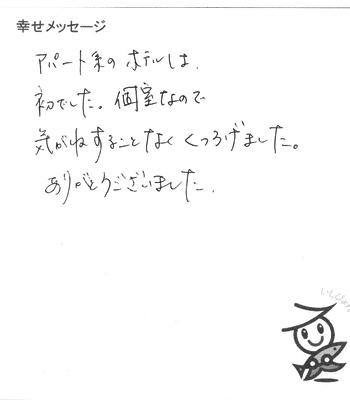 幸せメッセージ
アパート系のホテルは、
初でした。個室なので
気がねすることなく くつろげました。
ありがとうございました。